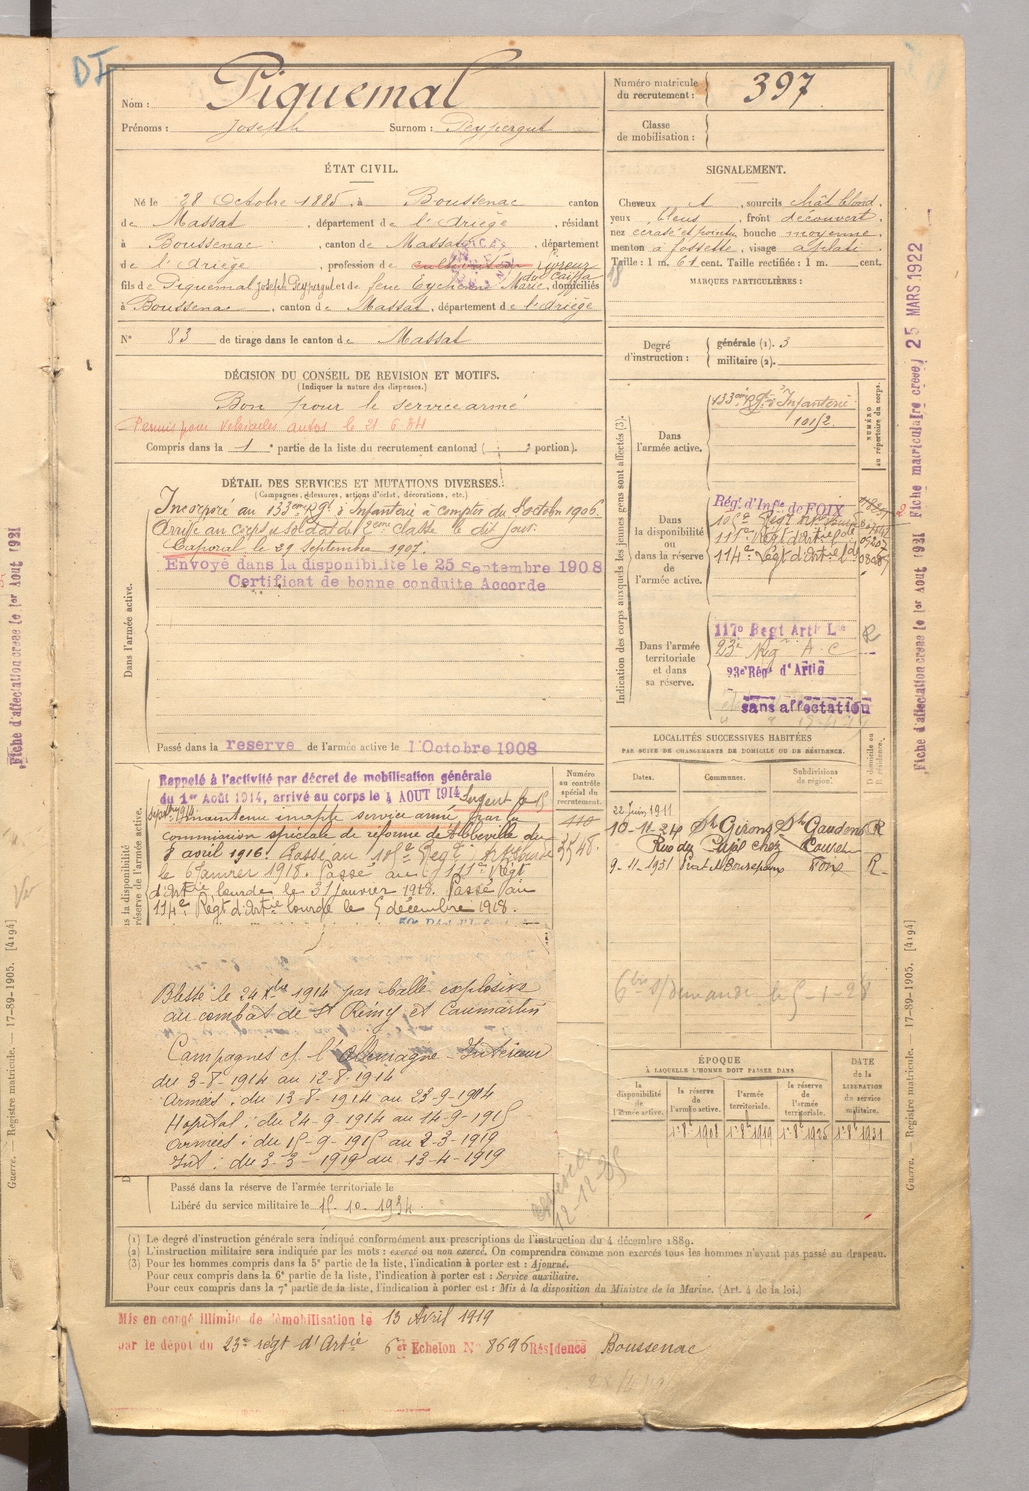 DI
Nom : Piquemal
Prénoms : Joseph Surnom : Peypergut
Numéro matricule
du recrutement : 397
Classe
de mobilisation :
ÉTAT CIVIL.
Né le 28 Octobre 1885, à Boussenac canton
de Massat, département de l'Ariège, résidant
à Boussenac, canton de Massat, département
de l'Ariège, profession de cultivateur livreur
fils de Piquemal Joseph Peypergut et de feue Eychenne Marie, domiciliés
à Boussenac, canton de Massat, département de l'Ariège
N° 83 de tirage dans le canton de Massat
SIGNALEMENT.
Cheveux , sourcils chât blond
yeux bleus, front découvert
nez écrasé et pointu, bouche moyenne
menton à fossette, visage aplati
Taille : 1 m. 61 cent. Taille rectifiée : 1 m. cent.
MARQUES PARTICULIÈRES :
Degré
d'instruction :
générale (1). 3
militaire (2).
DÉCISION DU CONSEIL DE REVISION ET MOTIFS.
(Indiquer la nature des dispenses.)
Bon pour le service armé
Permis pour Véhicules autos le 21 6
Compris dans la 1e partie de la liste du recrutement cantonal ( e portion).
DÉTAIL DES SERVICES ET MUTATIONS DIVERSES.
(Campagnes, blessures, actions d'éclat, décorations, etc.)
Dans l'armée active.
Incorporé au 133eme Rgt d'Infanterie à compter du 8 octobre 1906.
Arrivé au corps et soldat de 2eme classe le dit jour.
Caporal le 29 Septembre 1907.
Envoyé dans la disponibilité le 25 Septembre 1908
Certificat de bonne conduite Accordé
Passé dans la reserve de l'armée active le 1 Octobre 1908
Indication des corps auxquels les jeunes gens sont affectés (3).
NUMÉRO
au répertoire du corps.
Dans
l'armée active.
133eme Rgt d'Infanterie
Dans
la disponibilité
ou
dans la réserve
de
l'armée active.
Régt d'Infie de FOIX
105e Régt
115e Régt d'Artie ldе
114e Régt d'Artie ld
Dans l'armée
territoriale
et dans
sa réserve.
117e Regt Artie Lde
23e Rég A. C
23e Régt d'Artie
sans affectation
Rappelé à l'activité par décret de mobilisation générale
du 1er Août 1914, arrivé au corps le 4 AOUT 1914 Sergent le 15
septbre 1914 maintenu inapte service armé, par la
commission spéciale de réforme de Abbeville du
8 avril 1916. Passé au 105e Régt
le 6 Janvier 1918. Passé au 115e Régt
d'Artie lourde le 31 Janvier 1918. Passé au
114e Régt d'Artie lourde le 5 décembre 1918.
Numéro
au contrôle
spécial du
recrutement.
3548.
Blessé le 24 Xbre 1914 par balle explosive
au combat de St Rémy et Caumartin
Campagnes c/ l'Allemagne Intérieur
du 3-8-1914 au 12-8-1914
Armées : du 13-8-1914 au 23-9-1914
Hopital : du 24-9-1914 au 14-9-1915
Armées : du 15-9-1915 au 2-3-1919
Int : du 3-3-1919 au 13-4-1919
Passé dans la réserve de l'armée territoriale le
Libéré du service militaire le 15-10-1934.
LOCALITÉS SUCCESSIVES HABITÉES
PAR SUITE DE CHANGEMENTS DE DOMICILE OU DE RÉSIDENCE.
Dates. Communes. Subdivisions
de région. D domicile ou
R résidence.
22 juin 1911
10-11-24 St Girons St Gaudens R
Rue du
9-11-1931 Foix R
6 bis s/demande le 5-1-28
ÉPOQUE
À LAQUELLE L'HOMME DOIT PASSER DANS
la
disponibilité
de
l'armée active.
la réserve
de
l'armée active.
l'armée
territoriale.
la réserve
de
l'armée
territoriale.
DATE
de la
LIBÉRATION
du service
militaire.
(1) Le degré d'instruction générale sera indiqué conformément aux prescriptions de l'instruction du 4 décembre 1889.
(2) L'instruction militaire sera indiquée par les mots : exercé ou non exercé. On comprendra comme non exercés tous les hommes n'ayant pas passé au drapeau.
(3) Pour les hommes compris dans la 5e partie de la liste, l'indication à porter est : Ajourné.
Pour ceux compris dans la 6e partie de la liste, l'indication à porter est : Service auxiliaire.
Pour ceux compris dans la 7e partie de la liste, l'indication à porter est : Mis à la disposition du Ministre de la Marine. (Art. 4 de la loi.)
Mis en congé illimité de démobilisation le 13 Avril 1919
par le dépôt du 23e régt d'Artie 6e Echelon N° 8696 Résidence Boussenac
Fiche d'affectation créée le 1er Aout 1921 Fiche matriculaire créée 25 MARS 1922
Guerre. — Registre matricule. — 17-89-1905. [4194]
Fiche d'affectation créée le 1er Aout 1921
Guerre. — Registre matricule. — 17-89-1905. [4194]